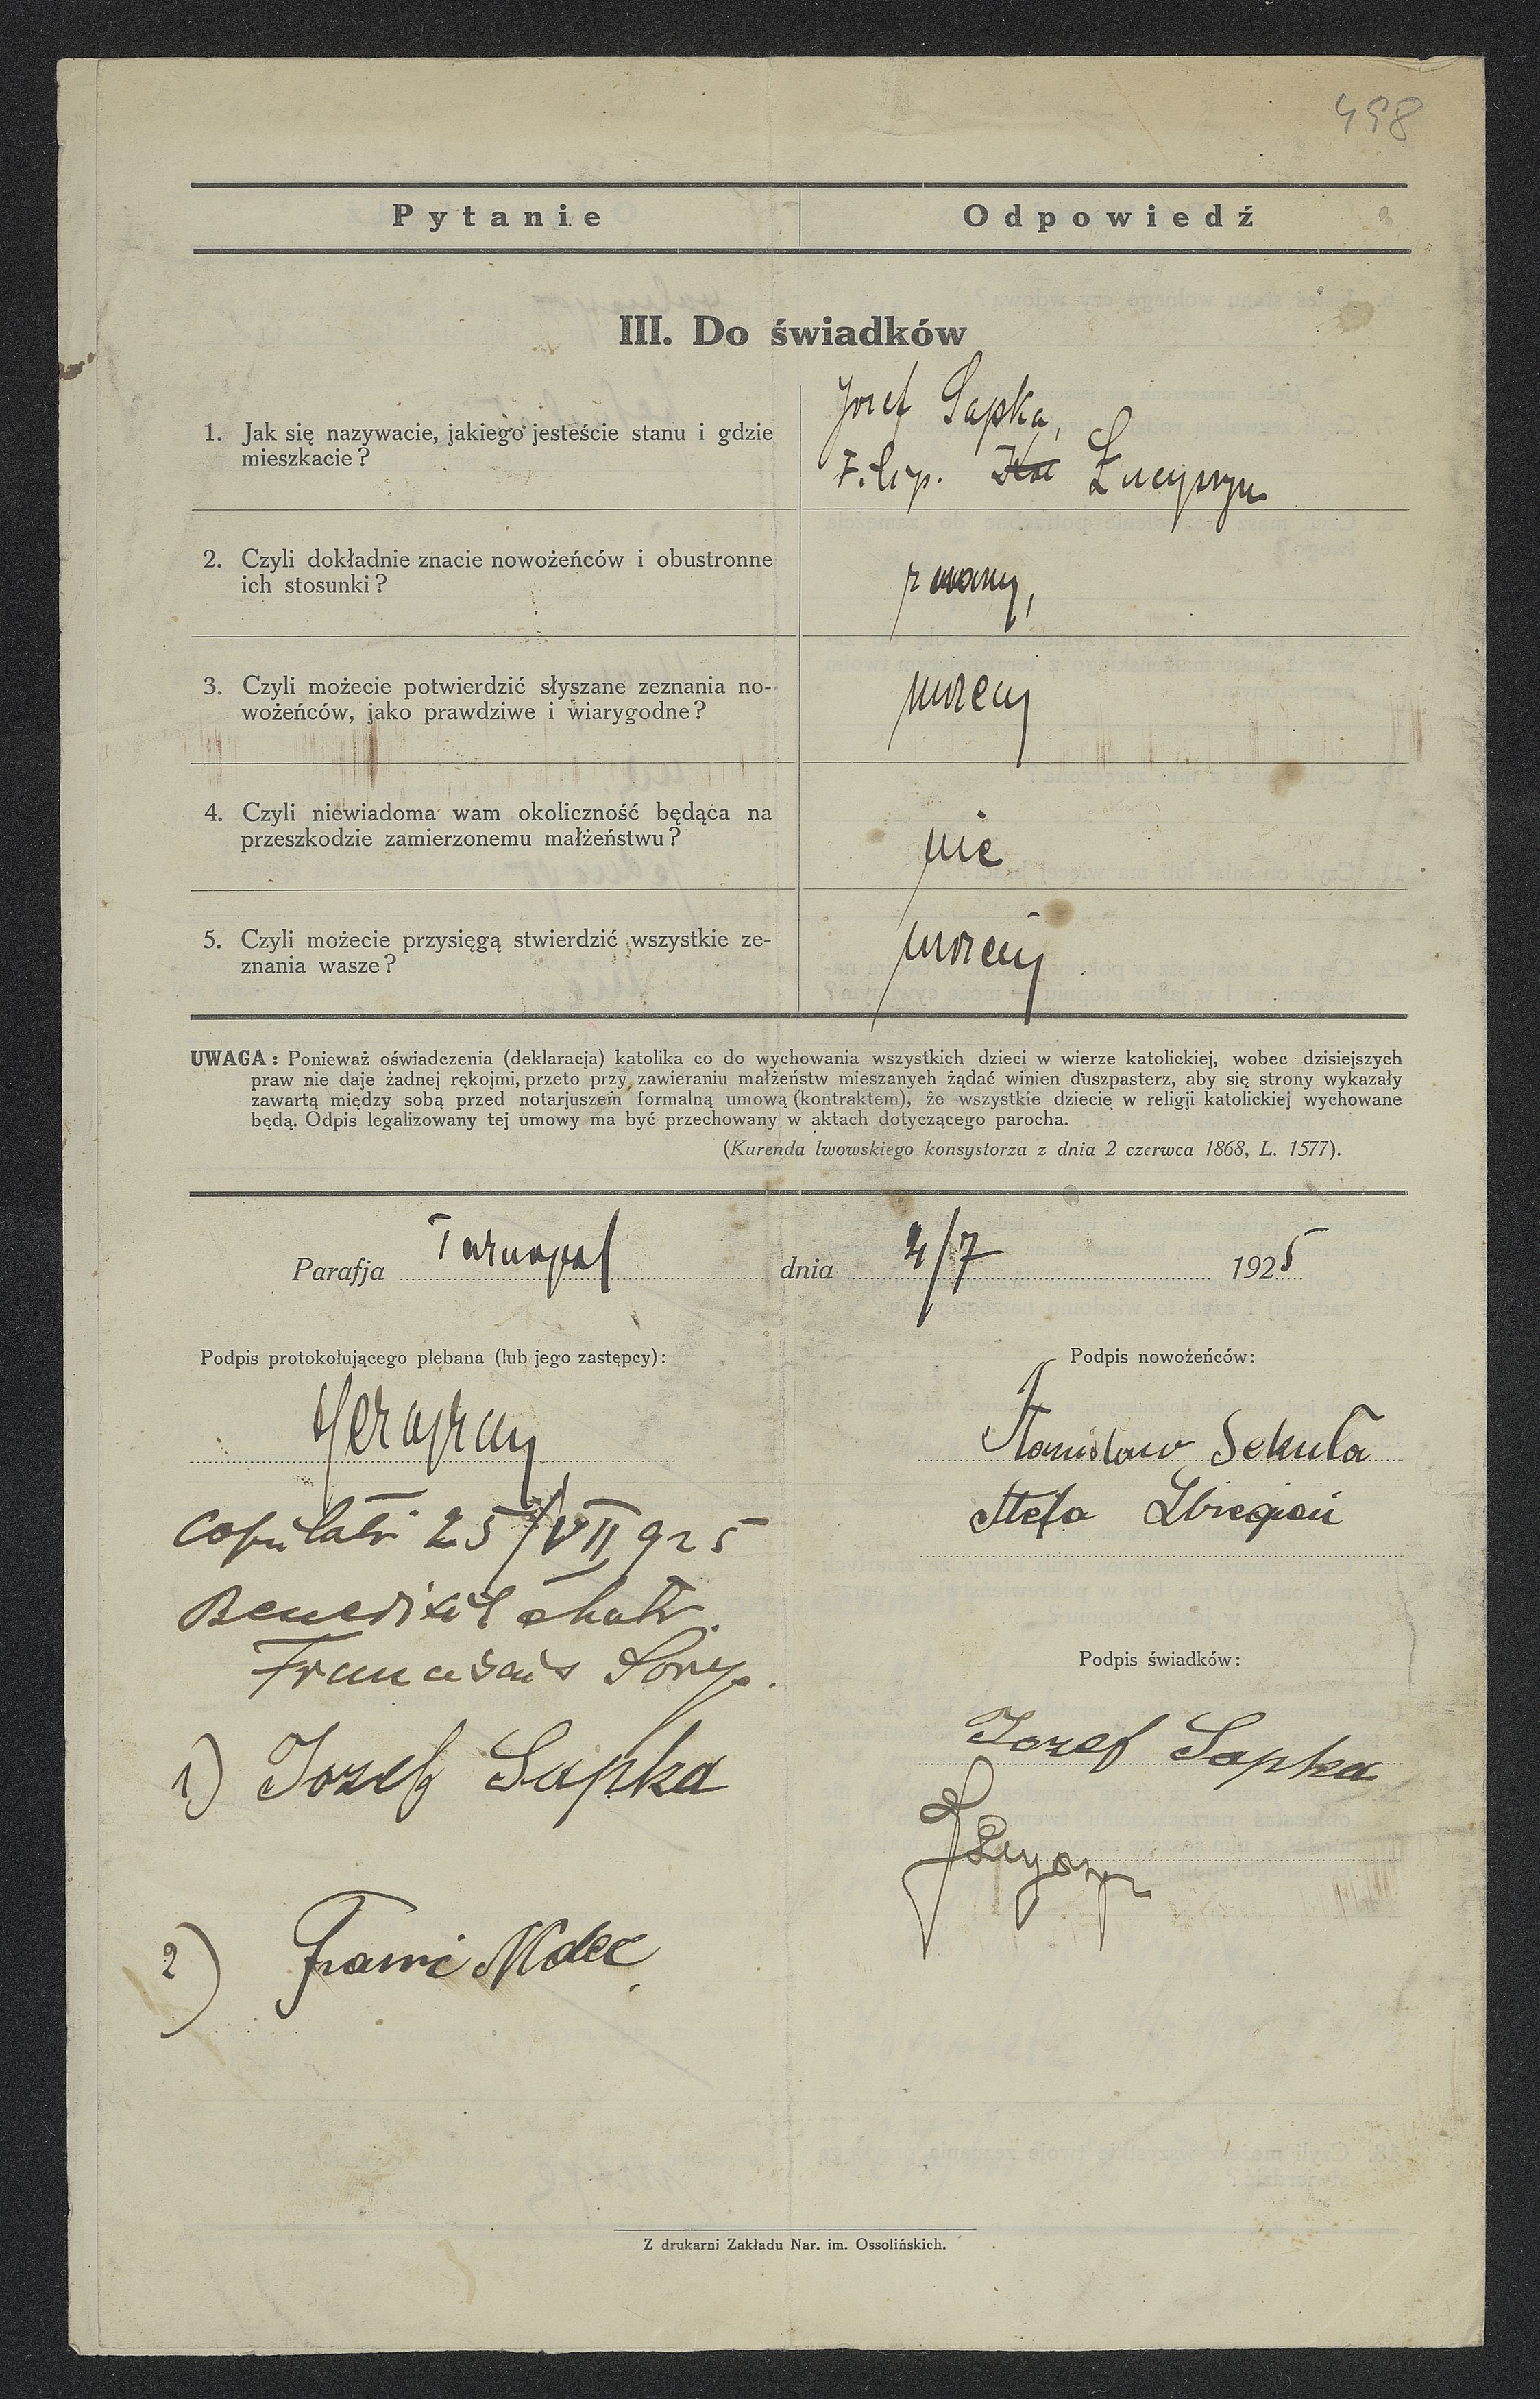 498
Pytanie Odpowiedź
III. Do świadków
1. Jak się nazywacie, jakiego jesteście stanu i gdzie
mieszkacie?
Józef Sapka,
Filip.
2. Czyli dokładnie znacie nowożeńców i obustronne
ich stosunki?
znamy,
3. Czyli możecie potwierdzić słyszane zeznania no-
wożeńców, jako prawdziwe i wiarygodne?
możemy
4. Czyli niewiadoma wam okoliczność będąca na
przeszkodzie zamierzonemu małżeństwu?
nie
5. Czyli możecie przysięgą stwierdzić wszystkie ze-
znania wasze?
możemy
UWAGA: Ponieważ oświadczenia (deklaracja) katolika co do wychowania wszystkich dzieci w wierze katolickiej, wobec dzisiejszych
praw nie daje żadnej rękojmi, przeto przy zawieraniu małżeństw mieszanych żądać winien duszpasterz, aby się strony wykazały
zawartą między sobą przed notarjuszem formalną umową (kontraktem), że wszystkie dziecie w religji katolickiej wychowane
będą. Odpis legalizowany tej umowy ma być przechowany w aktach dotyczącego parocha.
(Kurenda lwowskiego konsystorza z dnia 2 czerwca 1868, L. 1577).
Parafja Tarnopol dnia 4/7 1925
Podpis protokołującego plebana (lub jego zastępcy):
Copulati 25/VII 925
Benedixit
Franciscus
1) Jozef Sapka
2)
Podpis nowożeńców:
Stanisław Sekuła
Stefa
Podpis świadków:
Jozef Sapka
Z drukarni Zakładu Nar. im. Ossolińskich.